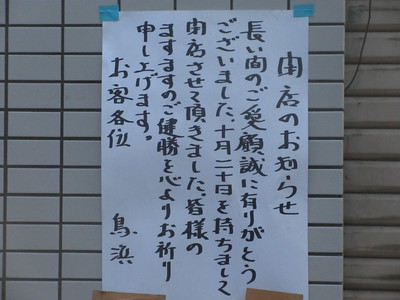 閉店のお知らせ
長い間のご愛願誠に有りがとう
ございました。十月二十日を持ちまして
閉店させて頂きました。皆様の
ますますのご健勝を心よりお祈り
申し上げます。
お客各位
鳥浜